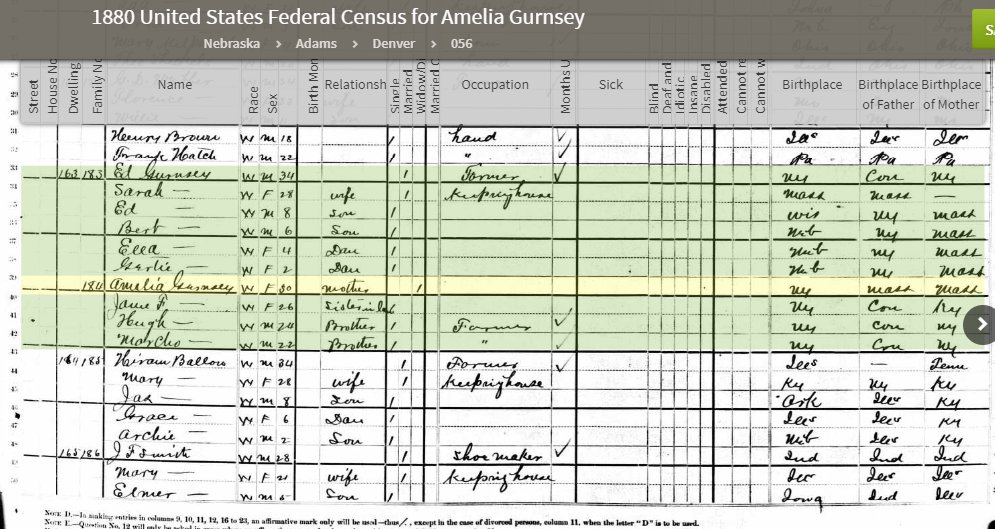 1880 United States Federal Census for Amelia Gurnsey
Nebraska > Adams > Denver > 056
Street House No Dwelling Family N Name Race Sex Birth Mon Relationsh Single Married Widow/D Married C Occupation Months U Sick Blind Deaf and Idiotic. Insane Disabled Attended Cannot re Cannot w Birthplace Birthplace of Father Birthplace of Mother
31 Henry Brown W M 18 / hand Ills Ills Ills
Hatch W M 22 / " Pa Pa Pa
33 163 183 Ed Gurnsey W M 34 / Farmer NY Con NY
Sarah — W F 28 wife / Keeping house Mass Mass —
Ed — W M 8 Son / Wis NY Mass
Bert — W M 6 Son / Neb NY Mass
Ella — W F 4 Dau / Neb NY Mass
Gertie — W F 2 Dau / Neb NY Mass
184 Amelia Gurnsey W F 50 Mother / NY Mass Mass
Jane F — W F 26 Sister in law / NY Con NY
Hugh — W M 24 Brother / Farmer NY Con NY
— W M 22 Brother / " NY Con NY
164 185 Hiram Ballou W M 34 / Farmer Ills — Tenn
Mary — W F 28 wife / Keeping house Ky NY Ky
Jas — W M 8 Son / Ark Ills Ky
Grace — W F 6 Dau / Ills Ills Ky
Archie — W M 2 Son / Neb Ills Ky
165 186 J F Smith W M 28 / Shoe maker Ind Ind Ind
Mary — W F 21 wife / Keeping house Ills Ills Ills
Elmer — W M Son / Iowa Ind Ills
NOTE D.—In making entries in columns 9, 10, 11, 12, 16 to 23, an affirmative mark only will be used—thus /, except in the case of divorced persons, column 11, when the letter "D" is to be used.
NOTE E.—Question No. 12 will only be asked